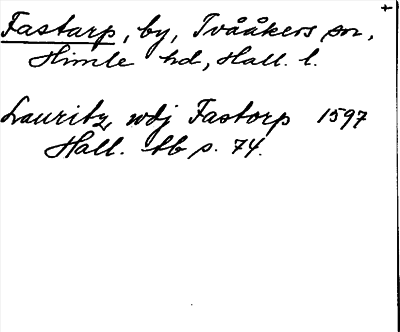 +
Fastarp, by, Tvååkers sn,
Himle hd, Hall. l.
Lauritz wdj Fastorp 1597
Hall. tb s. 74.